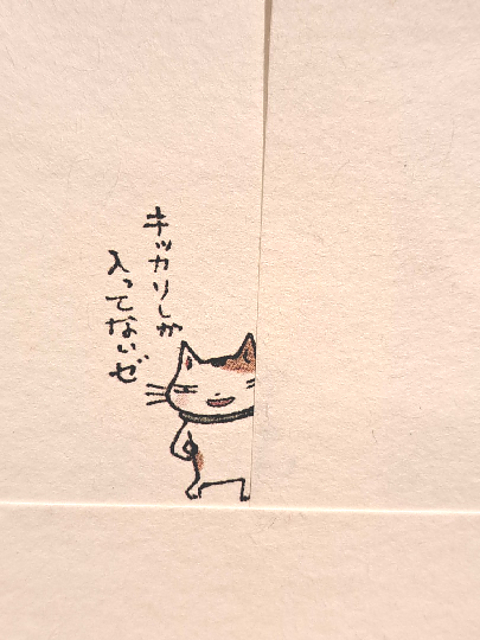 キッカリしか
入ってないぜ